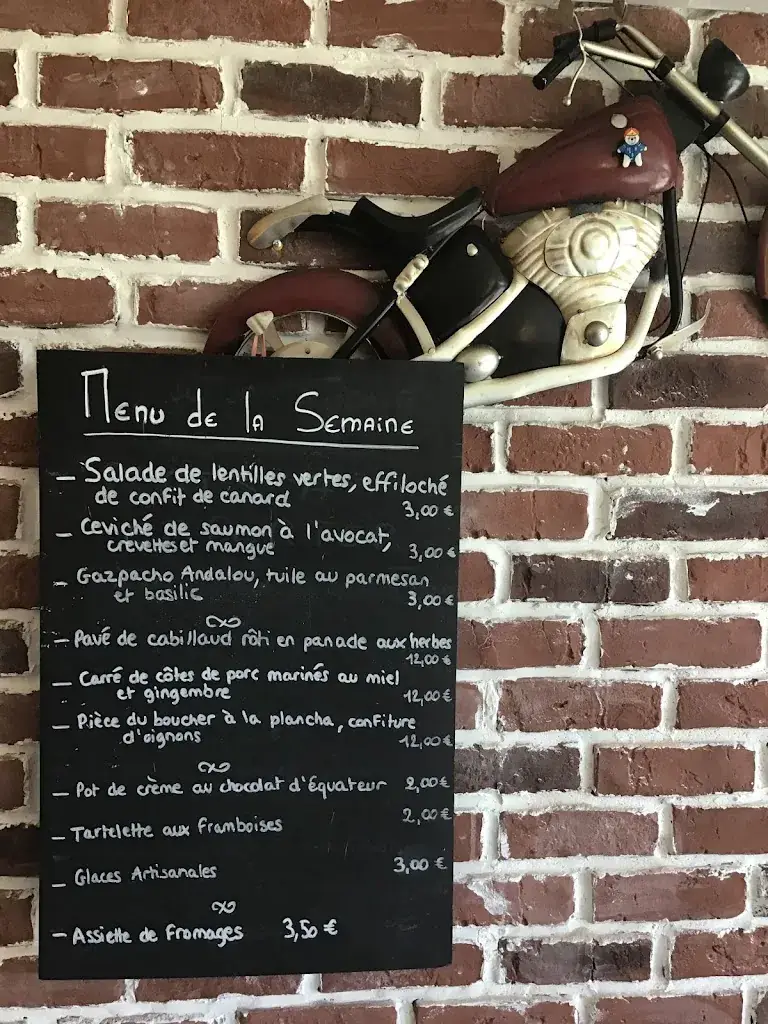 Menu de la Semaine
– Salade de lentilles vertes, effiloché
de confit de canard
3,00 €
– Ceviché de saumon à l'avocat,
crevettes et mangue 3,00 €
– Gazpacho Andalou, tuile au parmesan
et basilic 3,00 €
– Pavé de cabillaud rôti en panade aux herbes
12,00 €
– Carré de côtes de porc marinés au miel
et gingembre 12,00 €
– Pièce du boucher à la plancha, confiture
d'oignons 12,00 €
– Pot de crème au chocolat d'Équateur 2,00 €
– Tartelette aux framboises 2,00 €
– Glaces Artisanales 3,00 €
– Assiette de fromages 3,50 €